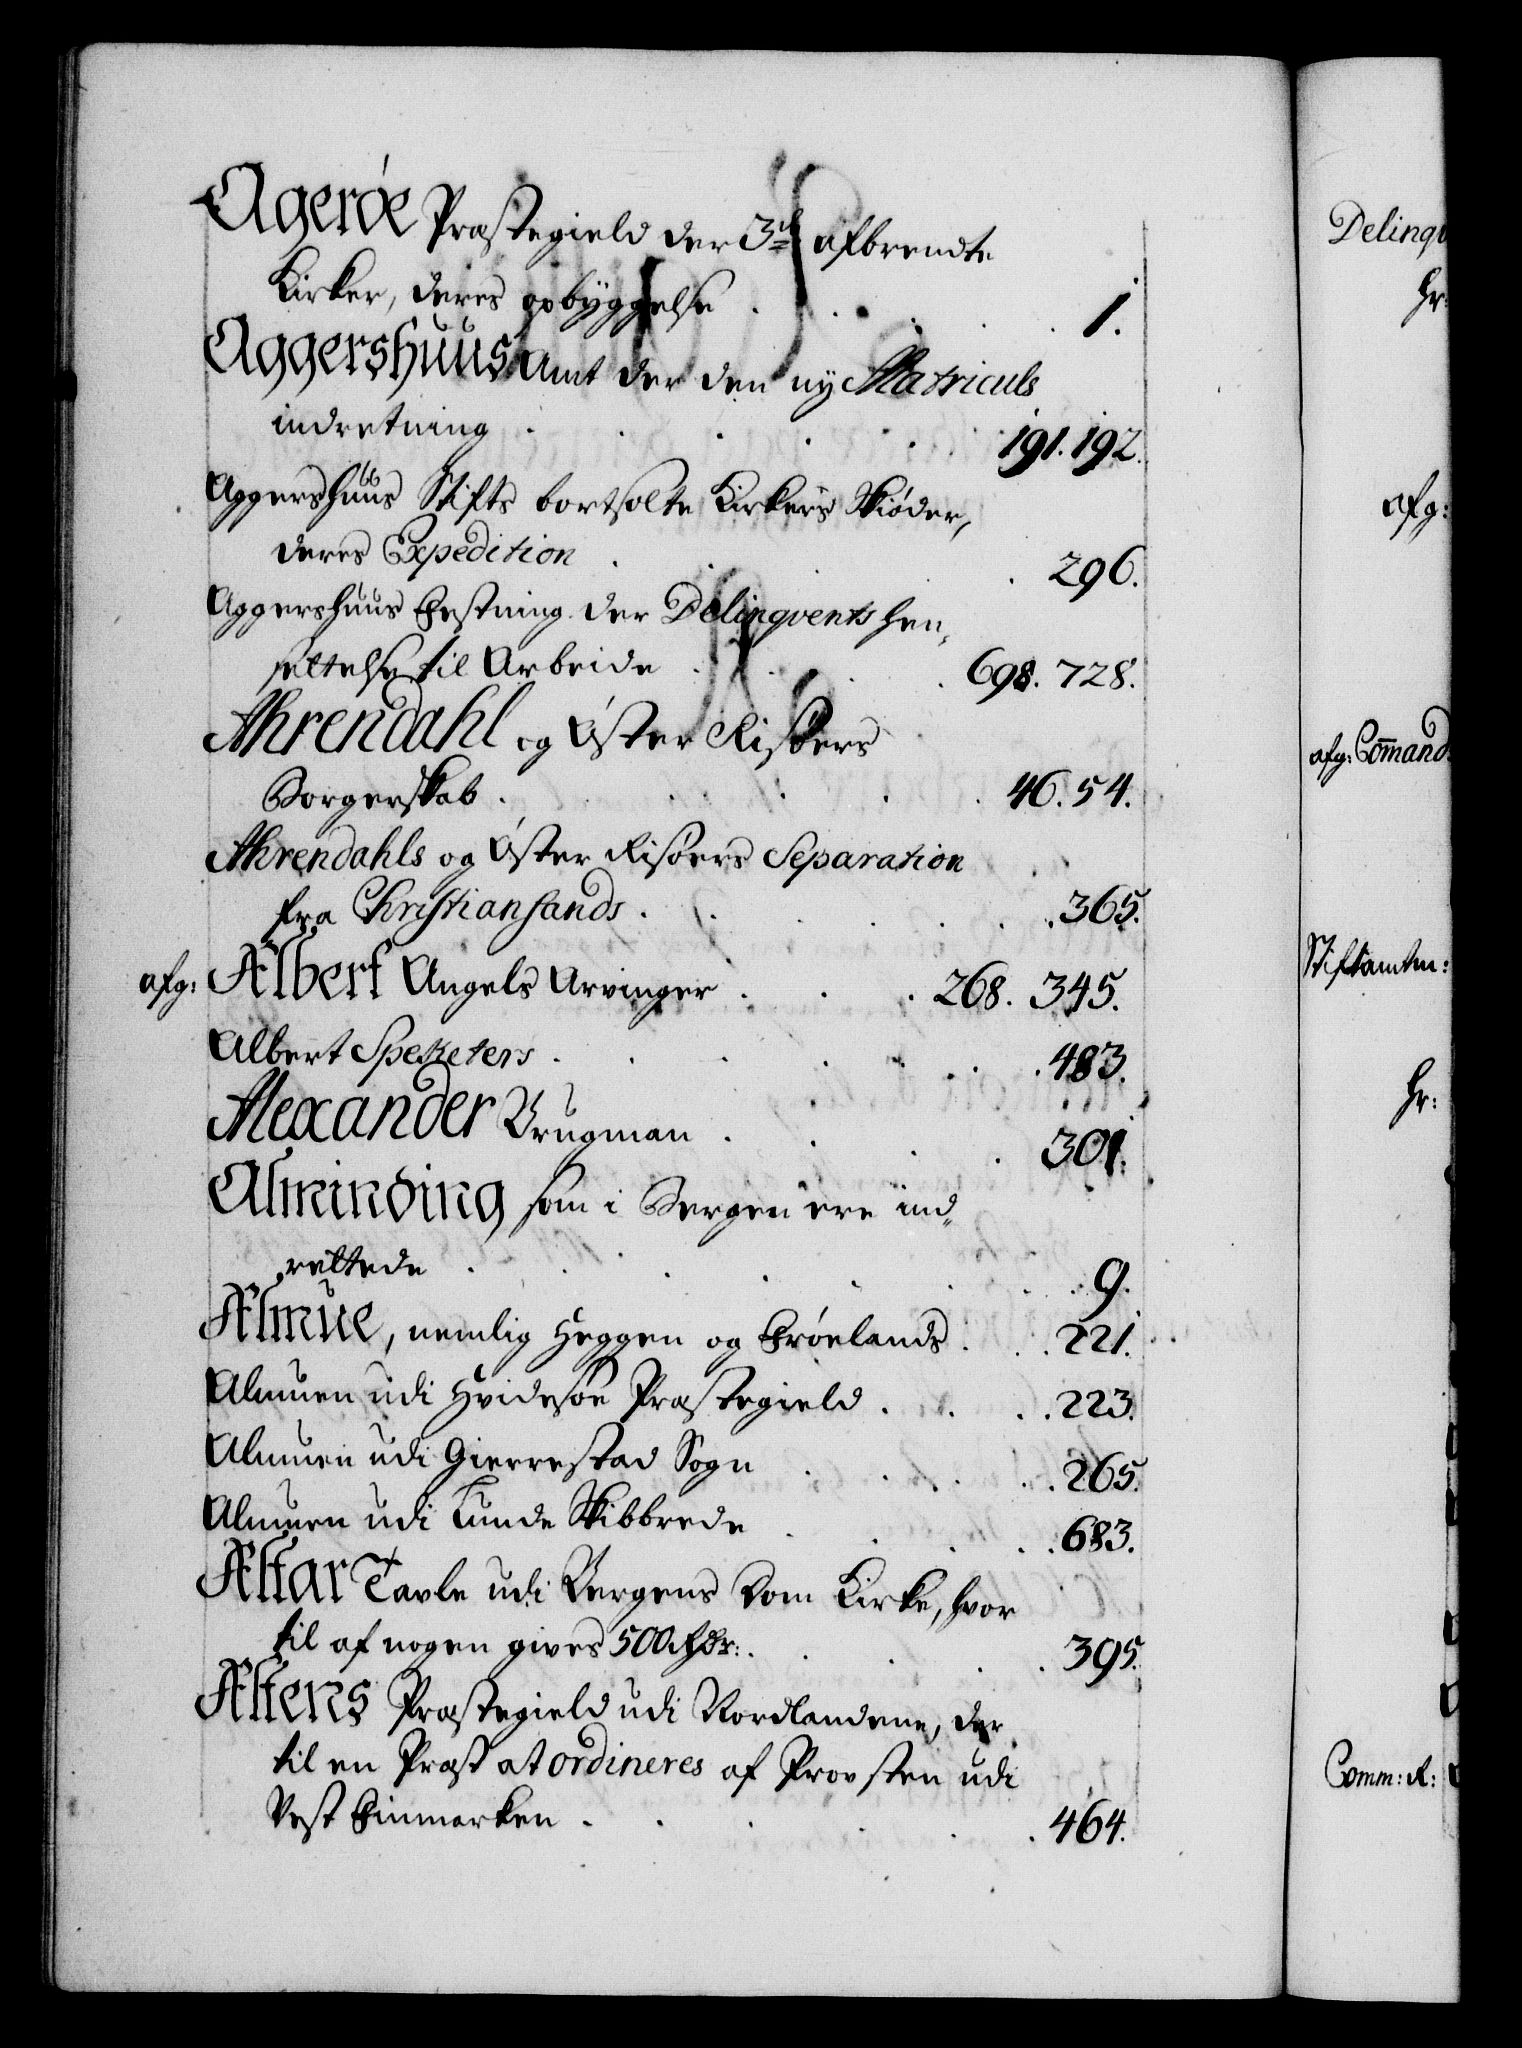 Agerøe Præstegield der 3de afbrendte
Kirker, deres opbyggelse . . . . . 1.
Aggershuus Amt der den ny Matriculs
indretning . . . . . 191. 192.
Aggershuus Stifts bortsolte Kirkers Skiøder,
deres Expedition . . . . . 296.
Aggershuus Festning der Delinqvents hen,
settelse til Arbeide . . . . 698. 728.
Ahrendahl og Øster Risøers
Borgerskab . . . . . . 46. 54.
Ahrendahls og Øster Risøers Separation
fra Christiansands . . . . . . 365.
afg: Albert Angels Arvinger . . . 268. 345.
Albert Speketers . . . . . . 483.
Alexander Brugman . . . . 301.
Alminding som i Bergen ere ind-
rettede . . . . . . . 9.
Almue, nemlig Heggen og Frøelands . . . 221.
Almuen udi Hvidesøe Præstegield . . . . 223.
Almuen udi Gierrestad Sogn . . . . . 265.
Almuen udi Lunde Skibbrede . . . . . 683.
Altar Tavle udi Bergens Dom Kirke, hvor
til af nogen gives 500 Rdr: . . . . . 395.
Altens Præstegield udi Nordlandene, der
til en Præst at ordineres af Provsten udi
Vest Finmarken . . . . . . 464.
Delinqv
hr:
afg:
afg: Command
Stiftamtm:
hr:
Comm: R: